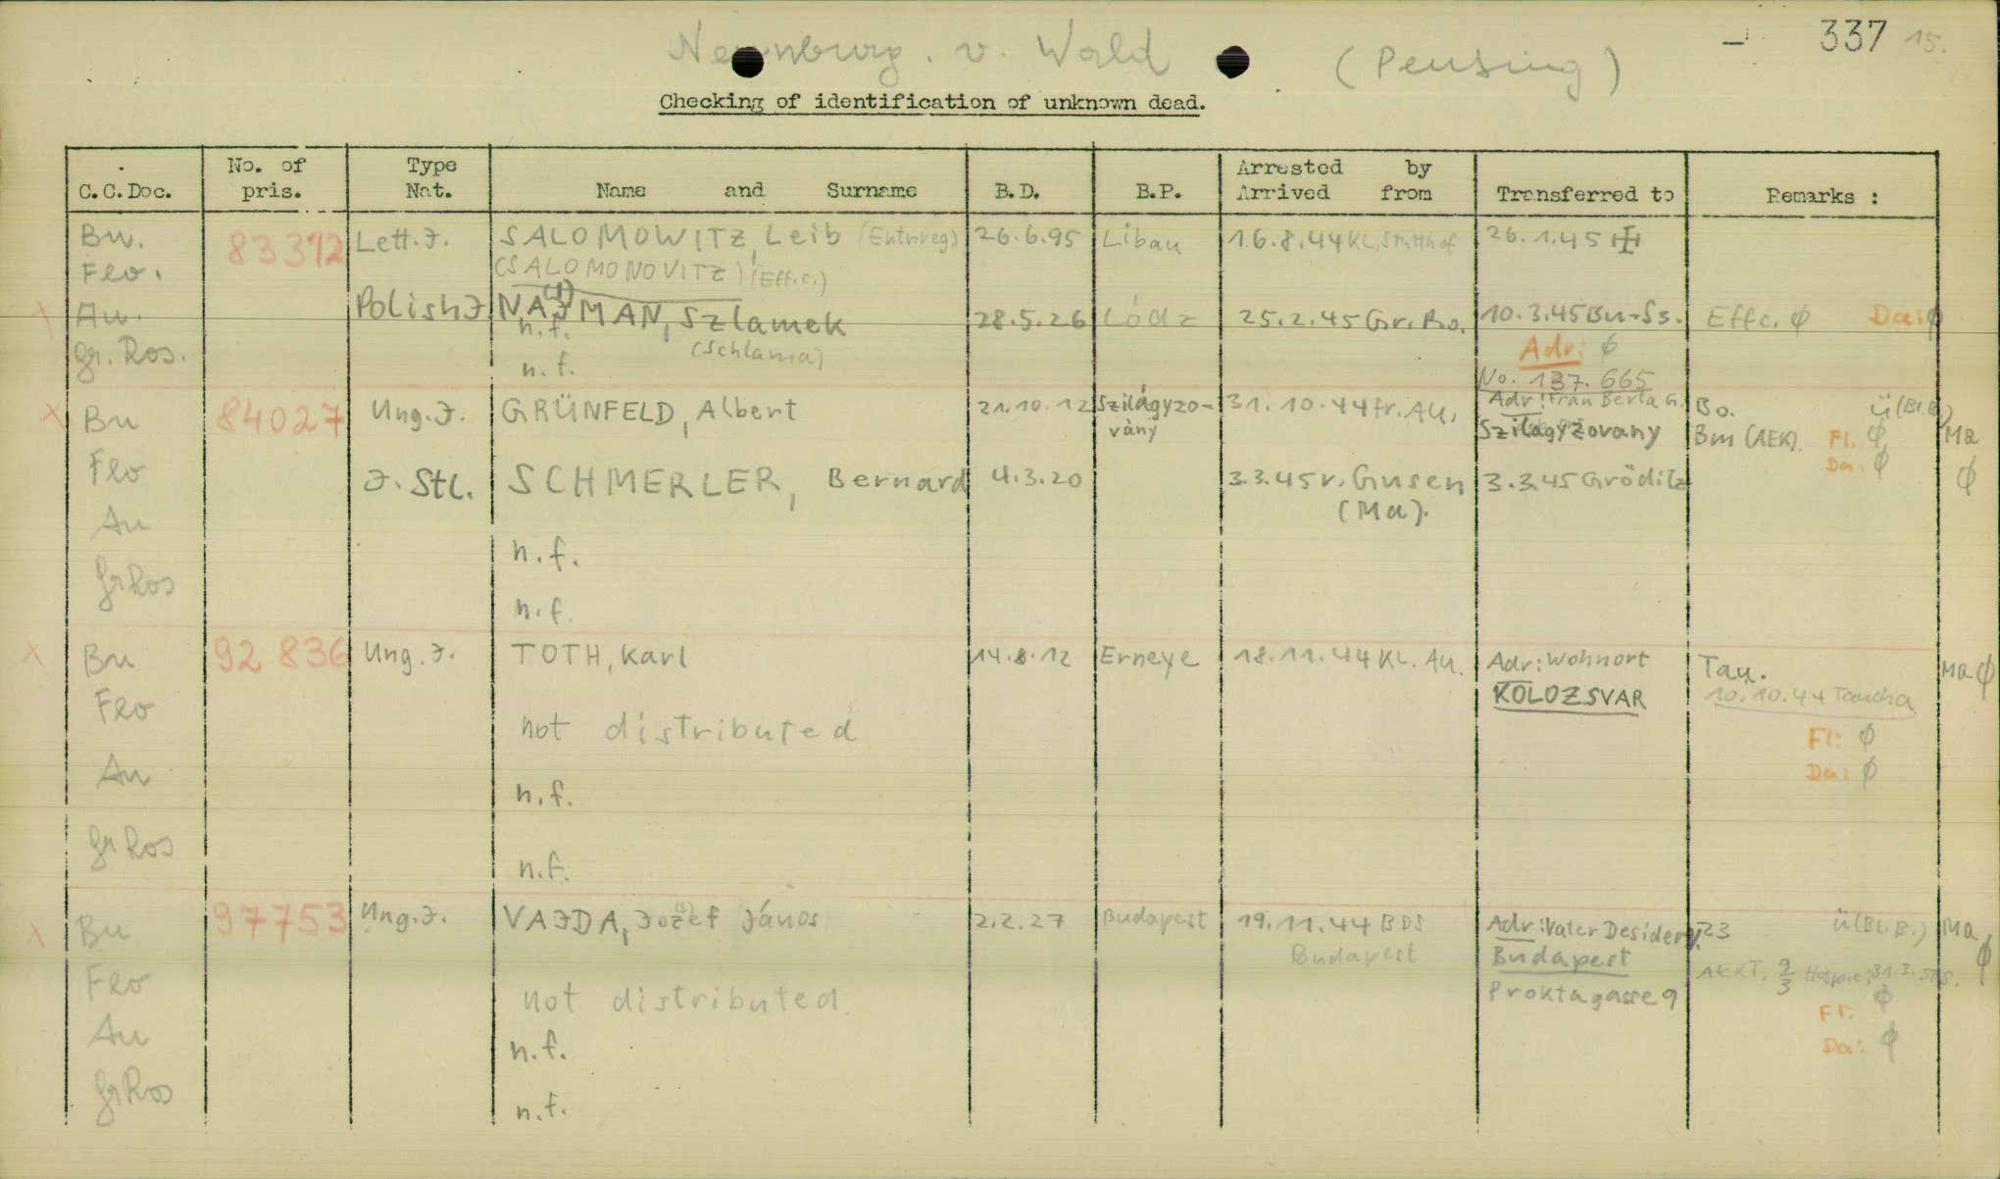 337 15.
Neunburg. v. Wald (Pensing)
Checking of identification of unknown dead.
C.C.Doc. No. of pris. Type Nat. Name and Surname B.D. B.P. Arrested by Arrived from Transferred to Remarks :
Bu. 83312 Lett.J. SALOMOWITZ, Leib (Entnreg) 26.6.95 Libau 16.8.44 KL. Stutthof 26.1.45
Flo. (SALOMONOVITZ) (Eff.c.)
x Au. Polish J NAJMAN, Szlamek 28.5.26 Lódz 25.2.45 Gr.Ro. 10.3.45 Bu-S3. Effc. ϕ Da: ϕ
n.f. (Schlama) Adr: ϕ
gr. Ros. n.f. No. 137.665
x Bu 84027 Ung.J. GRÜNFELD, Albert 21.10.12 Szilágyzo-vány 31.10.44 fr. Au. Adr: Frau Berta G. Szilagyzovany Bo. ü(Bl.B)
Bm (AEK). Fl. ϕ Ma
Da: ϕ ϕ
Flo J. Stl. SCHMERLER, Bernard 4.3.20 3.3.45 v. Gusen (Ma). 3.3.45 Gröditz
Au n.f.
grRos n.f.
x Bu 92 836 Ung.J. TOTH, Karl 14.8.12 Erneye 18.11.44 KL. Au. Adr: Wohnort KOLOZSVAR Tau. Ma ϕ
10.10.44 Taucha
Flo not distributed Fl: ϕ
Au n.f. Da: ϕ
grRos n.f.
x Bu 97753 Ung.J. VAJDA, Jozef János 2.2.27 Budapest 19.11.44 BDS Budapest Adr: Vater Desider, Budapest Proktagasse 9 V.23 ü(Bl.B.) Ma ϕ
AEKT. 31.3.
Flo not distributed Fl: ϕ
Au n.f. Da: ϕ
grRos n.f.